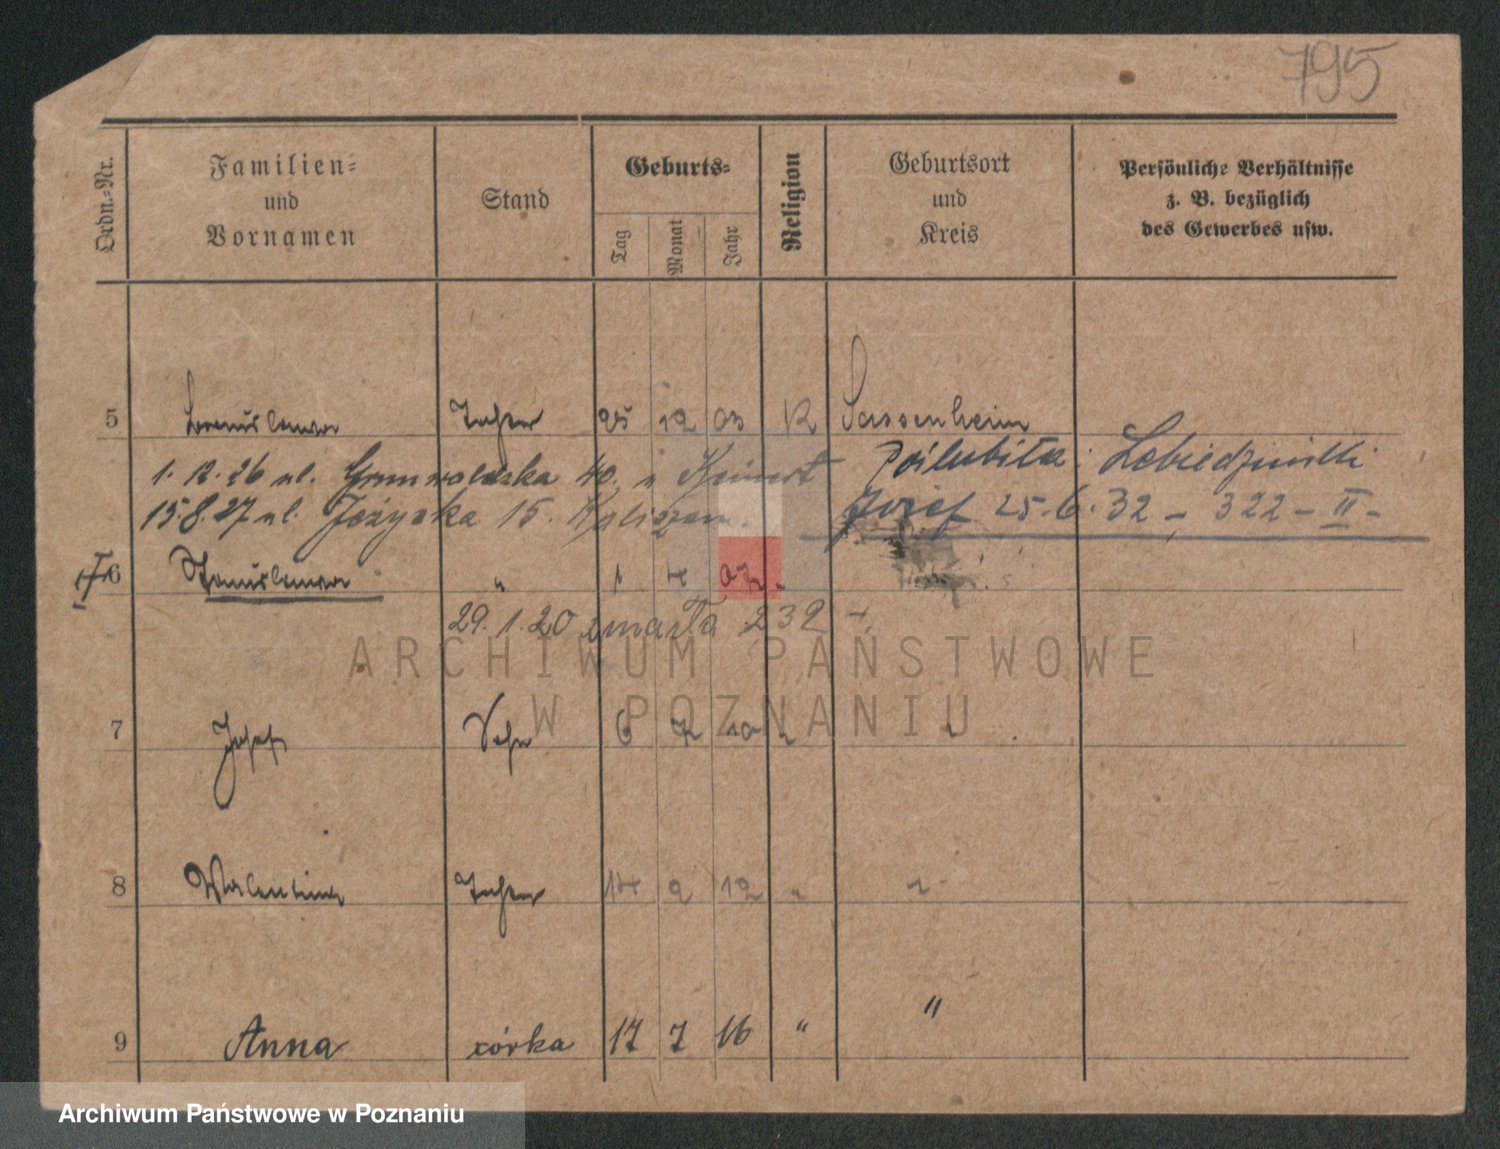 795
Ordn.-Nr.
Familien-
und
Vornamen
Stand
Geburts-
Tag
Monat
Jahr
Religion
Geburtsort
und
Kreis
Persönliche Verhältnisse
z. B. bezüglich
des Gewerbes usw.
5 Tochter 25 12 03 R Sassenheim
1.12.26 ul. Grunwaldzka 40. poślubiła
15.8.27 ul. Jeżycka 15. Józef 25.6.32 – 322 – II –
6 Stanislawa " 1 4 07 "
29.1.20 zmarła 239
7 Josef Sohn 6 7 10 "
8 Walentina Tochter 14 2 12 "
9 Anna córka 17 7 16 " "
ARCHIWUM PAŃSTWOWE
W POZNANIU
Archiwum Państwowe w Poznaniu